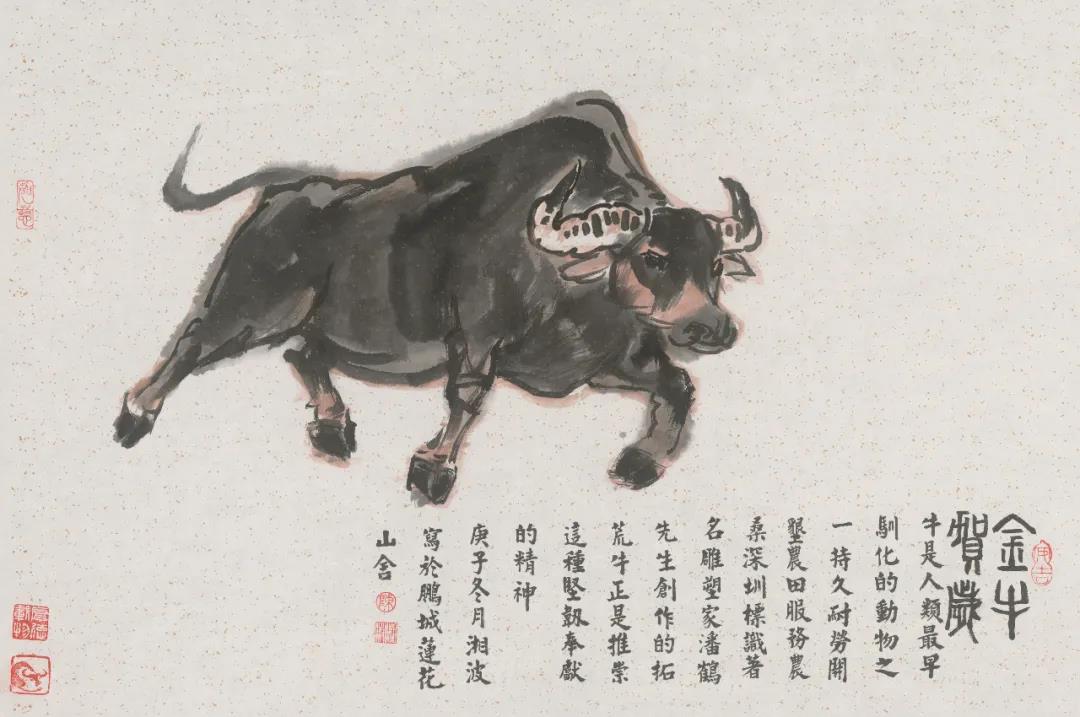 金牛
賀歲
牛是人類最早
馴化的動物之
一持久耐勞開
墾農田服務農
桑深圳標識著
名雕塑家潘鶴
先生創作的拓
荒牛正是推崇
這種堅韌奉獻
的精神
庚子冬月湘波
寫於鵬城蓮花
山舍